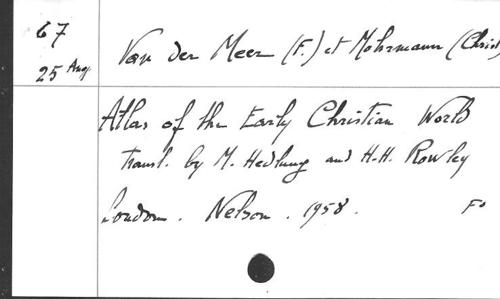 67
25 Aug
Van der Meer (F.) et Mohrmann (Christ
Atlas of the Early Christian World
transl. by M. Hedlung and H.H. Rowley
London. Nelson. 1958. Fo